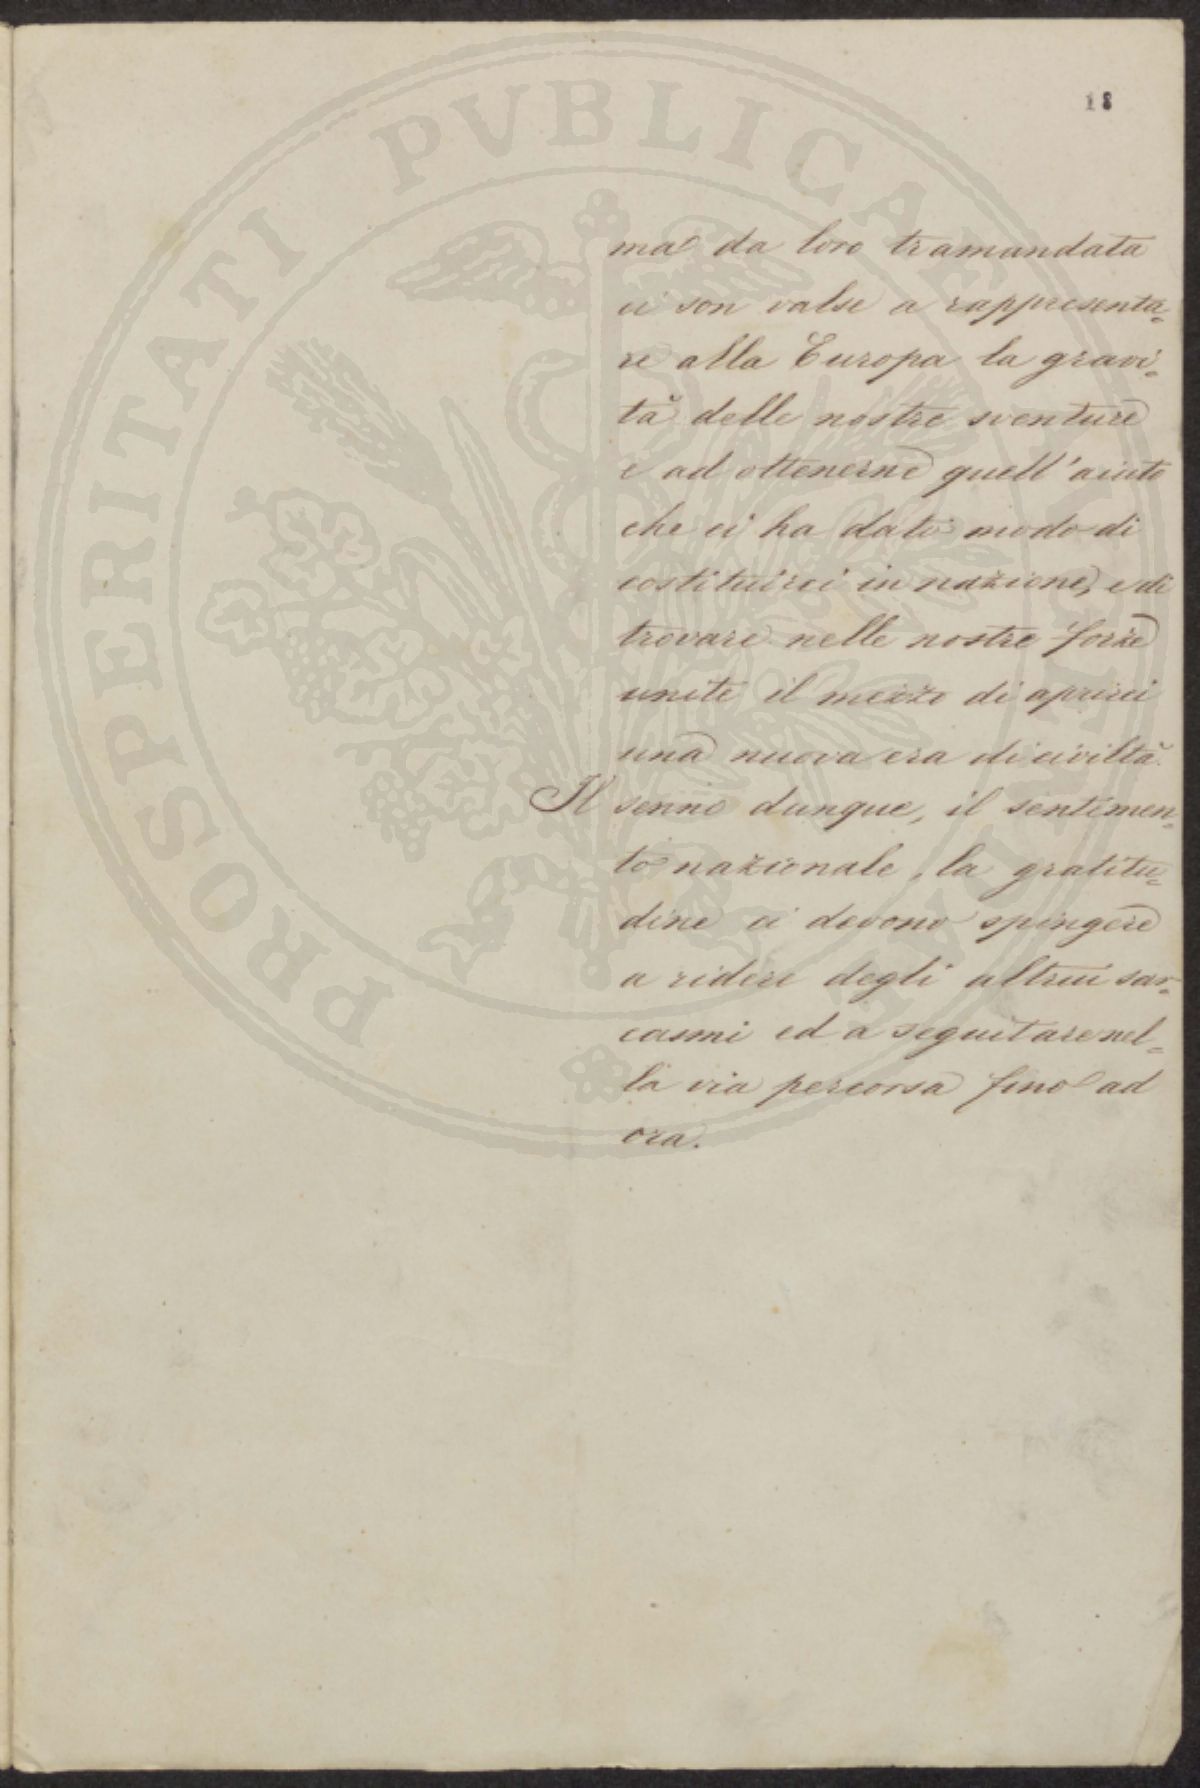 18
PROSPERITATI PVBLICAE AVGENDAE
ma da loro tramandata
ci son valse a rappresenta=
re alla Europa la gravi=
tà delle nostre sventure
e ad ottenerne quell'aiuto
che ci ha dato modo di
costituirci in nazione, e di
trovare nelle nostre forze
unite il mezzo di aprirci
una nuova era di civiltà.
Il senno dunque, il sentimen=
to nazionale, la gratitu=
dine ci devono spingere
a ridere degli altrui sar=
casmi ed a seguitare nel=
la via percorsa fino ad
ora.